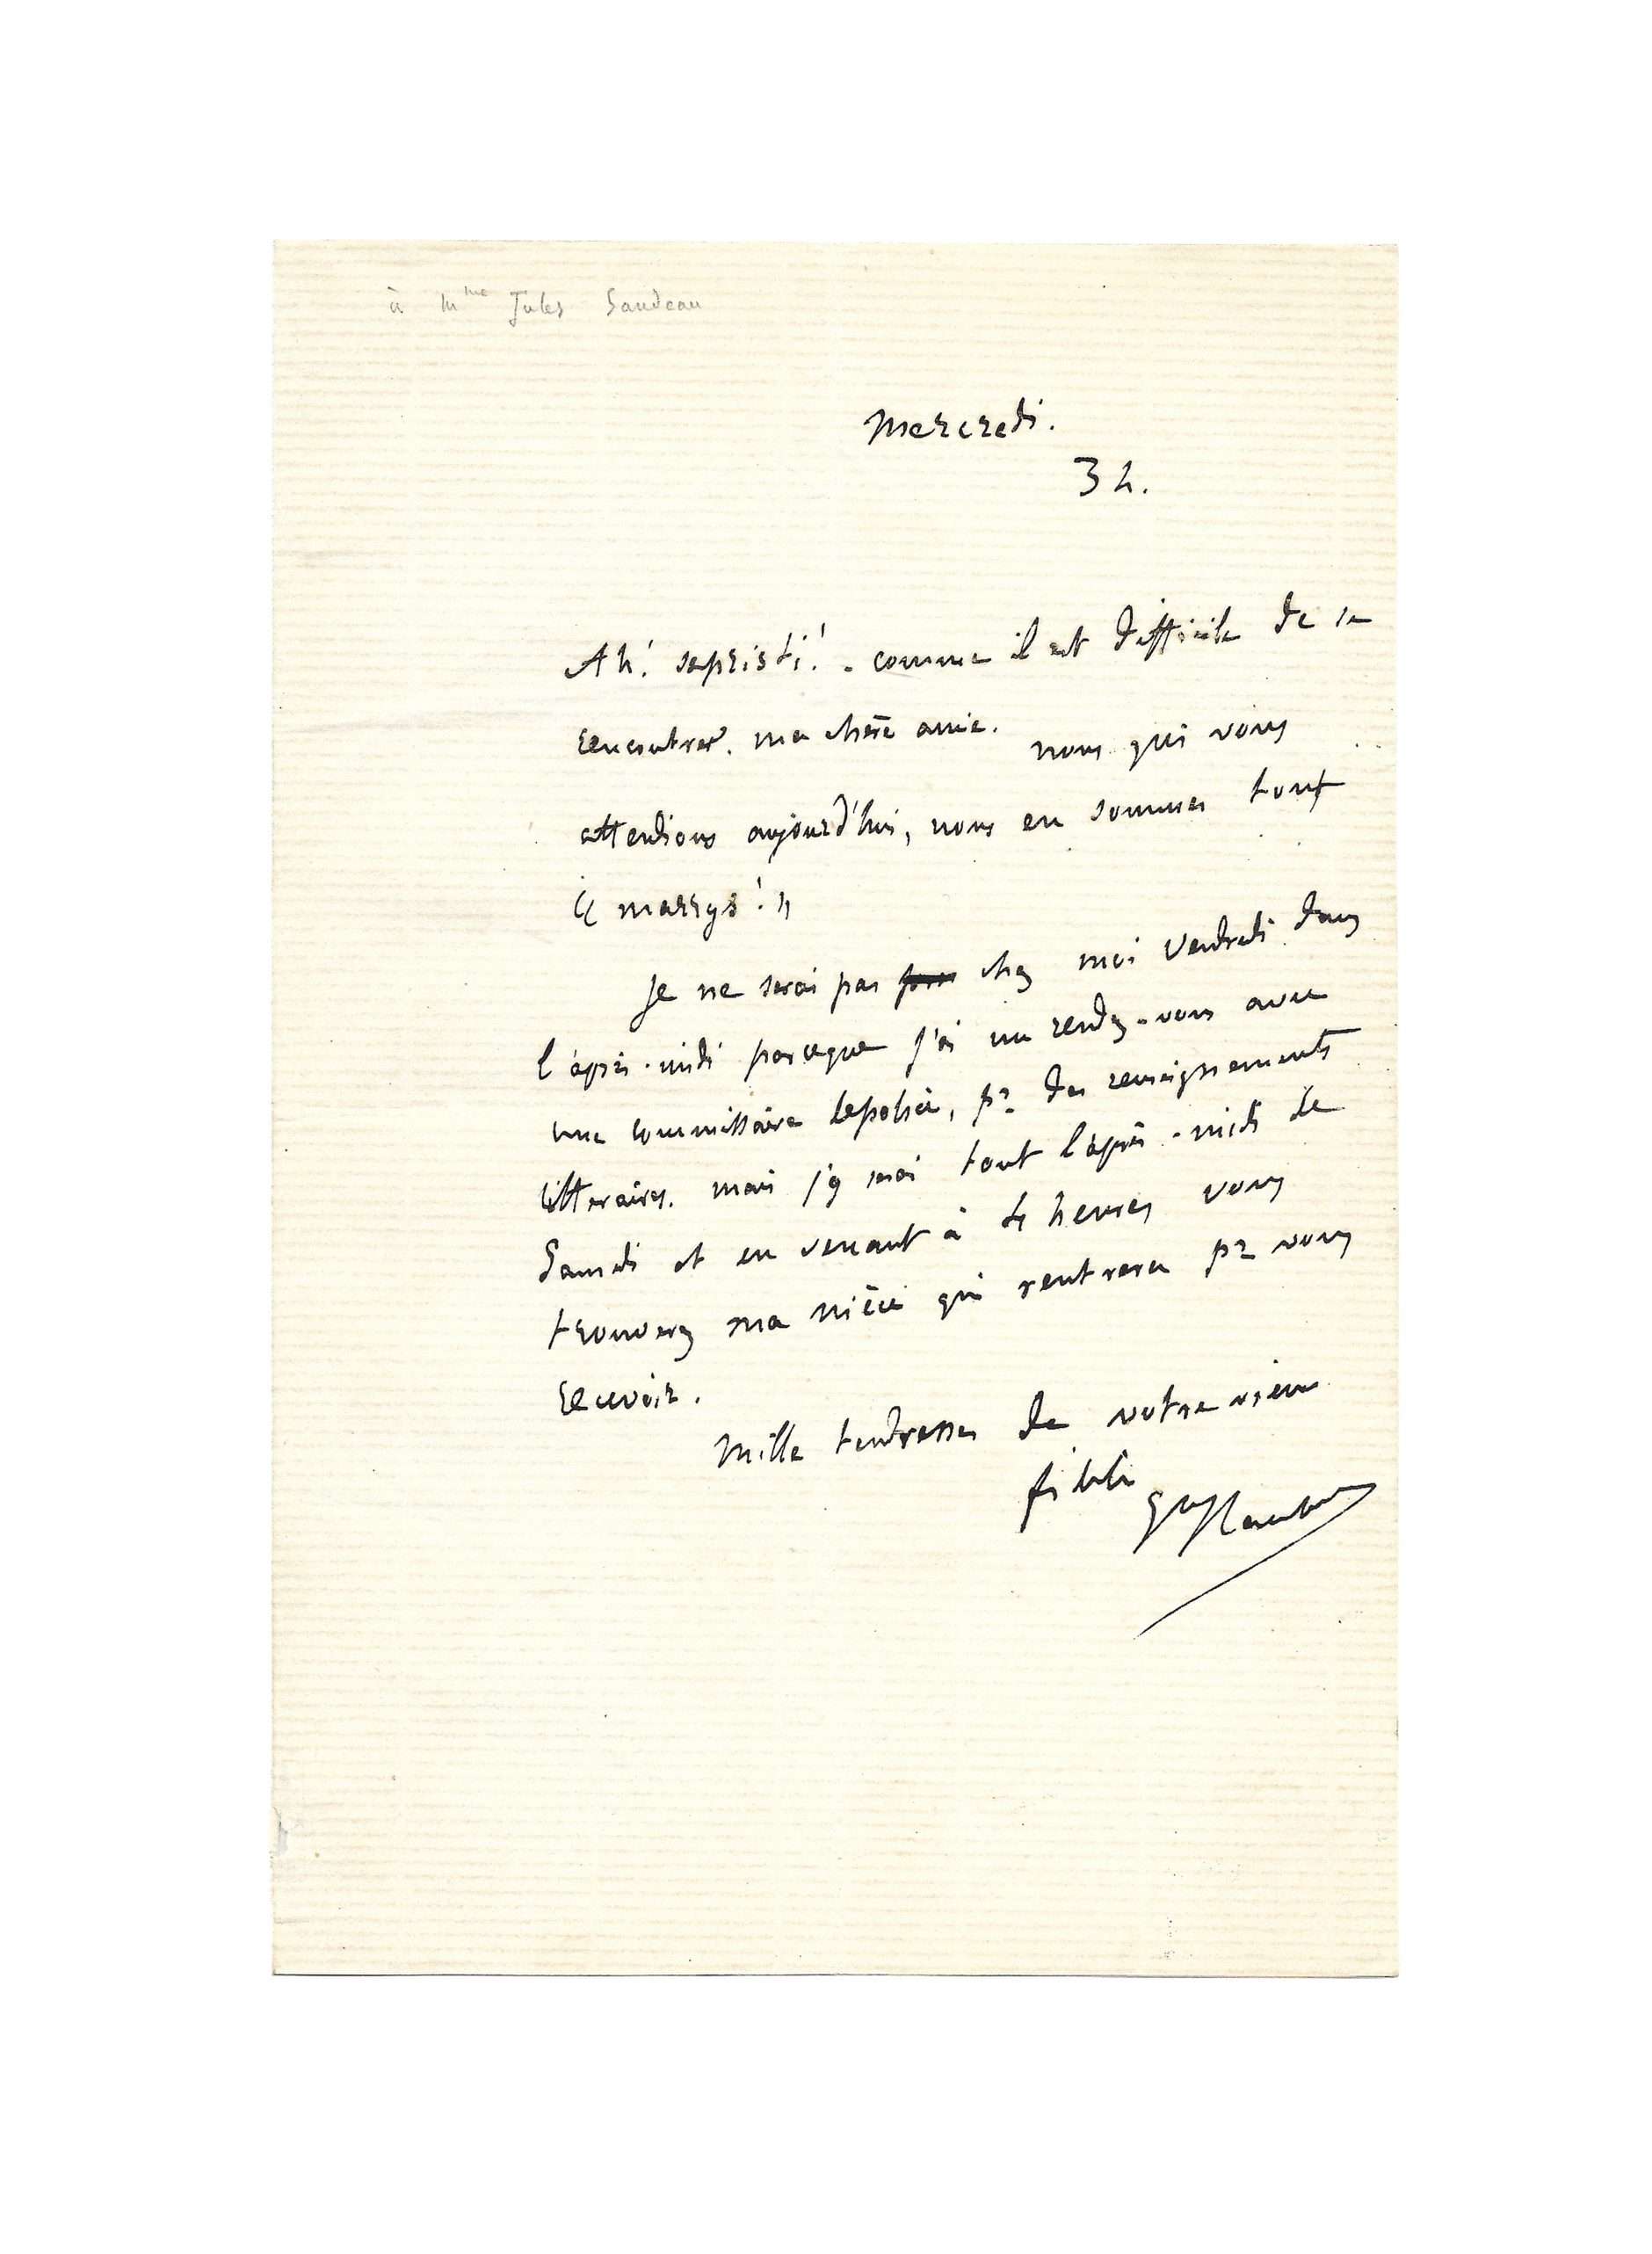 à Mme Jules Sandeau
Mercredi.
3 h.
Ah! sapristi! - comme il est difficile de se
rencontrer, ma chère amie. nous qui vous
attendions aujourd'hui, nous en sommes tout
« marrys! »
Je ne serai pas chez moi Vendredi dans
l'après-midi parceque j'ai un rendez-vous avec
un commissaire de police, pr des renseignements
litteraires. mais j'y serai tout l'après-midi de
Samedi et en venant à 4 heures vous
trouverez ma nièce qui rentrera pr vous
recevoir.
Mille tendresses de votre vieux
fidele
Gve Flaubert